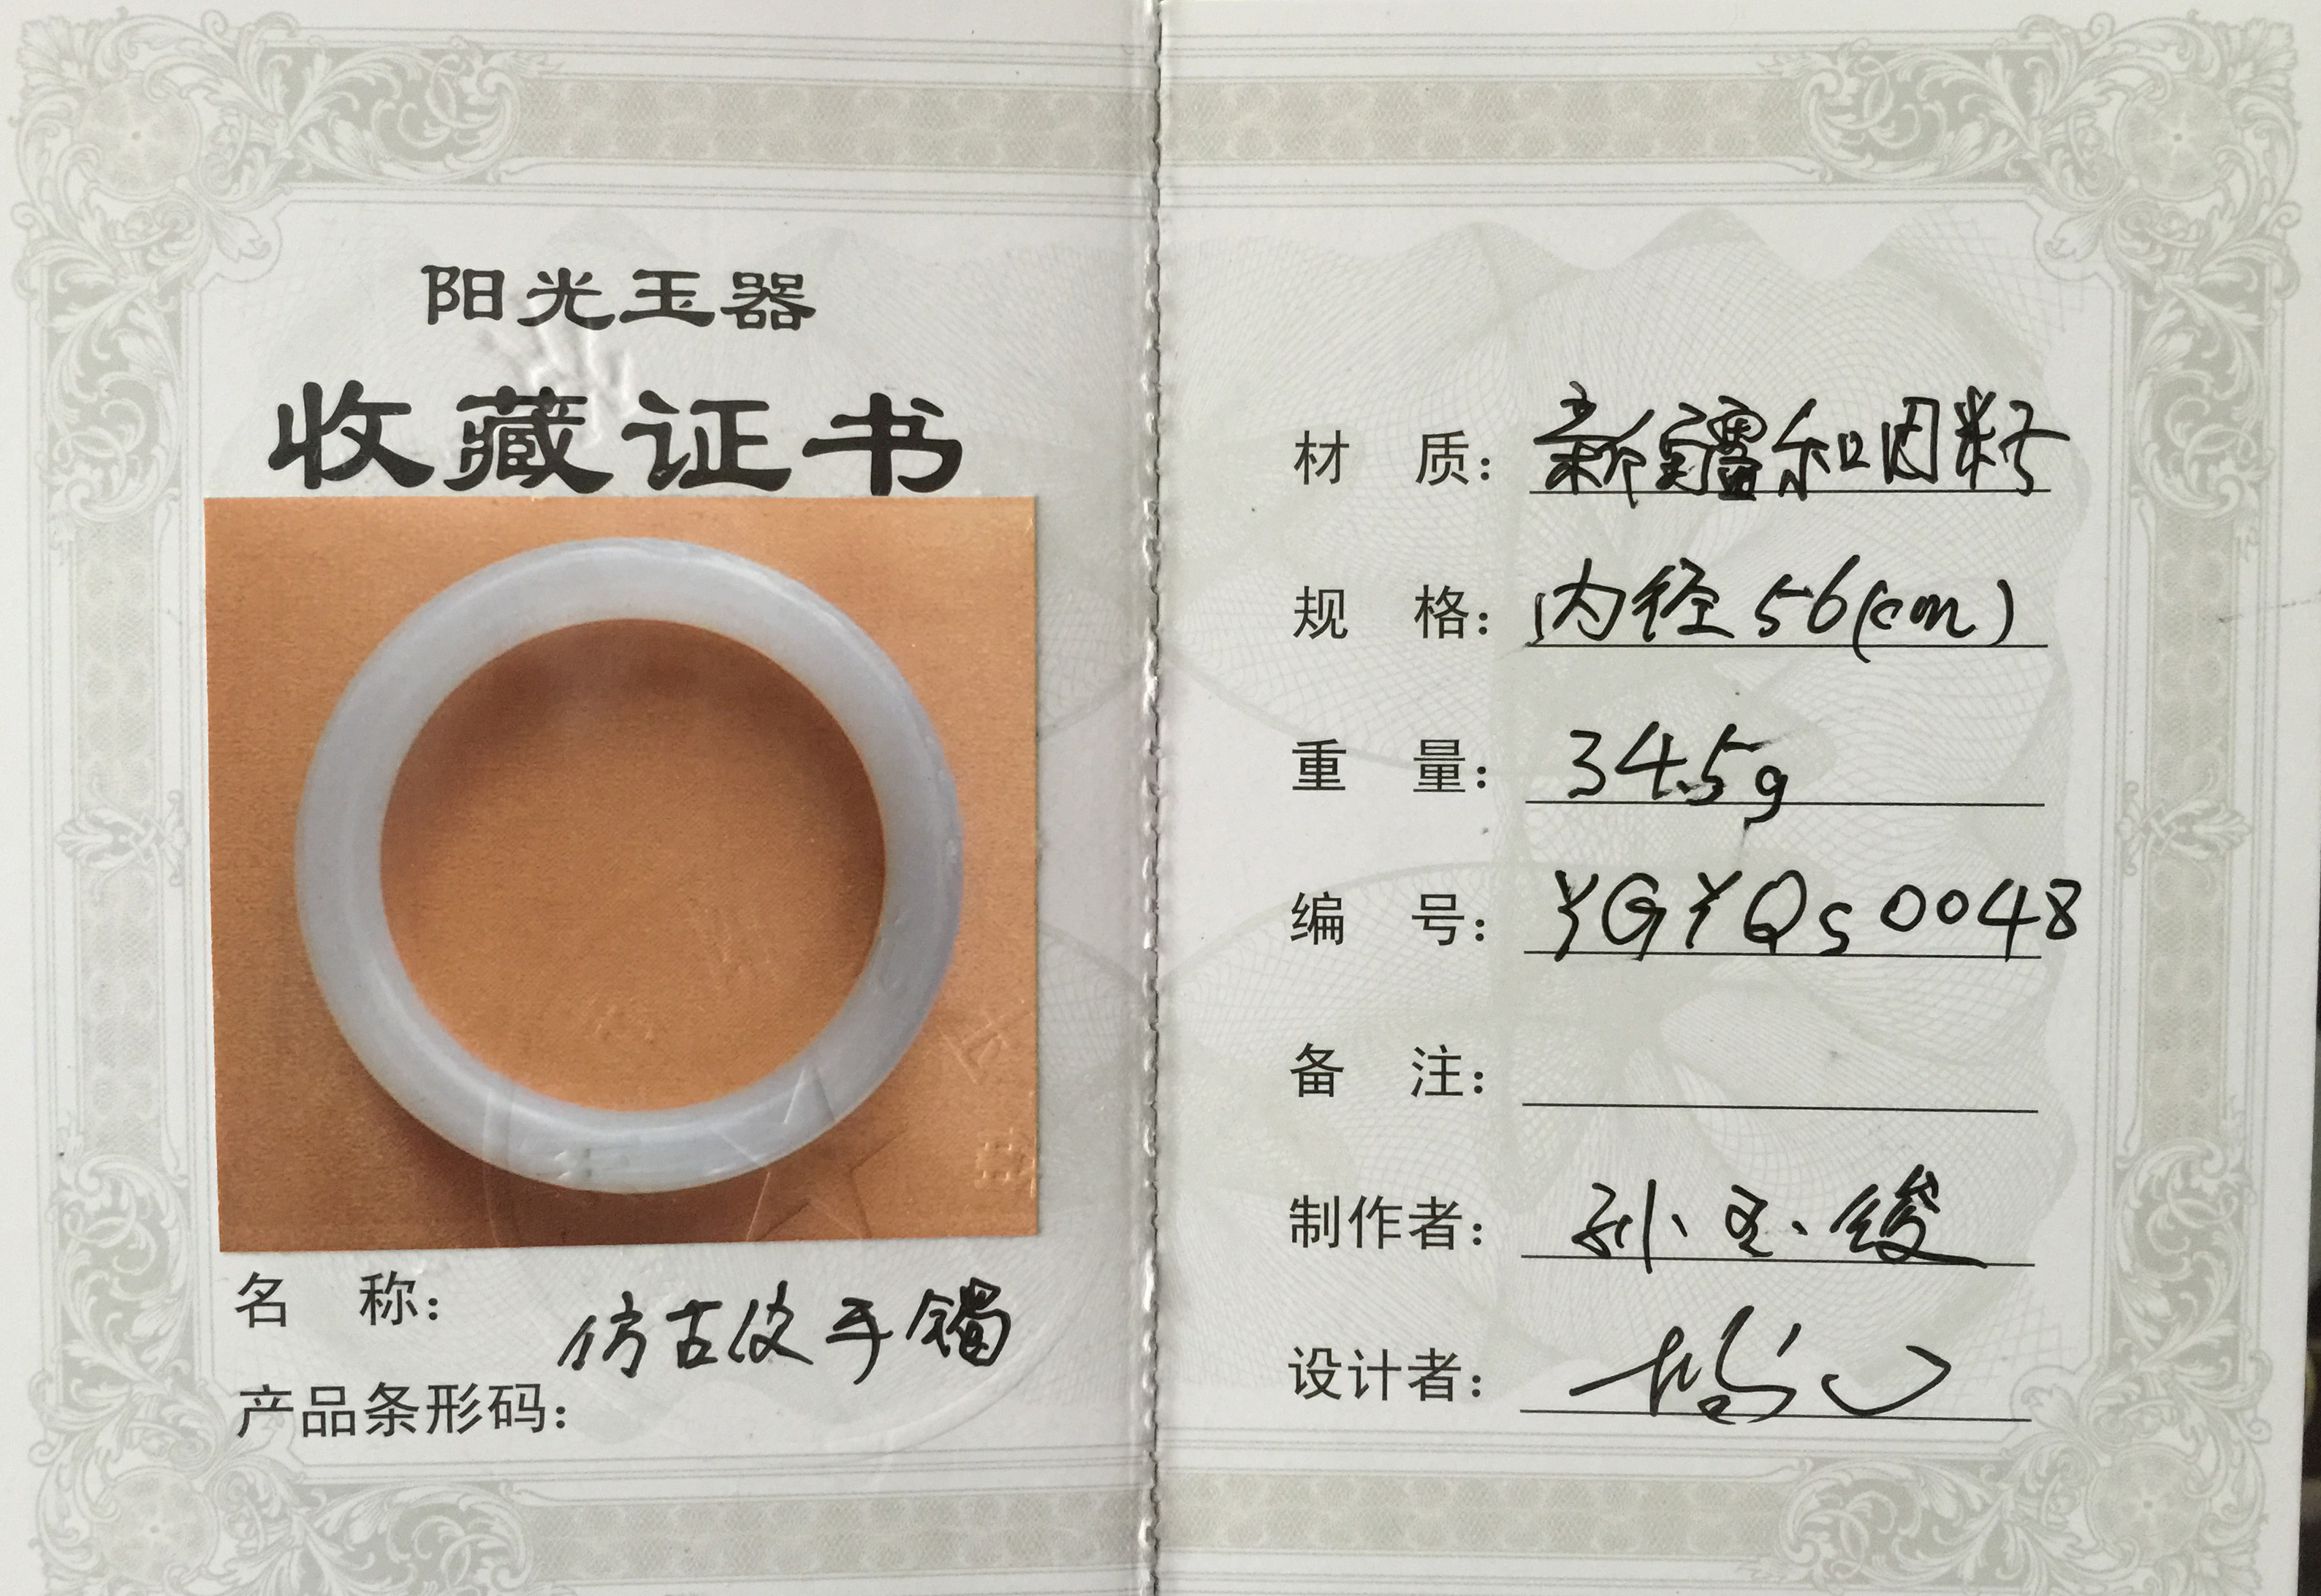 阳光玉器
收藏证书
名 称: 仿古皮手镯
产品条形码:
材 质: 新疆和田籽
规 格: 内径56(cm)
重 量: 34.5g
编 号: YGYQS0048
备 注:
制作者: 孙玉俊
设计者: